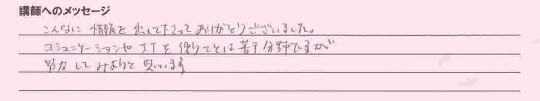 講師へのメッセージ
こんなに情報を出して下さってありがとうございました。
コミュニケーションやITを使うことは苦手分野ですが
努力してみようと思います